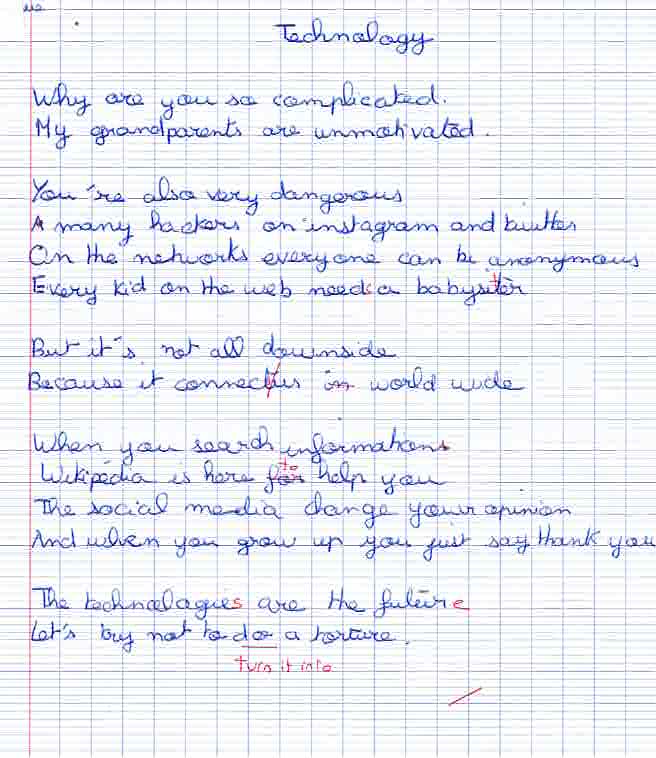 Technology
Why are you so complicated.
My grandparents are unmotivated.
You 're also very dangerous
A many hackers on instagram and twitter
On the networks everyone can be anonymous
Every kid on the web needs a babysitter
But it's not all downside
Because it connects us in world wide
When you search informations
Wikipédia is here for to help you
The social media change your opinion
And when you grow up you just say thank you
The technologies are the future
Let's try not to do a torture.
turn it into